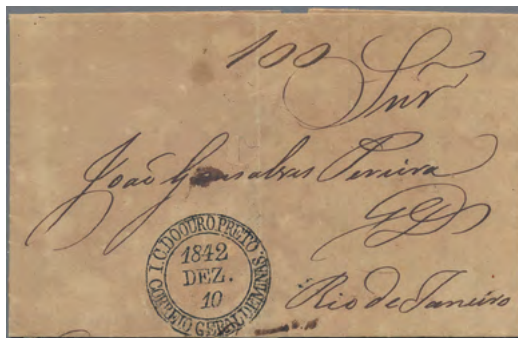 100
Snr
João Gonsalves Pereira
GD
Rio de Janeiro
I.C.DO OURO PRETO.
1842
DEZ.
10
CORREIO GERAL DE MINAS.